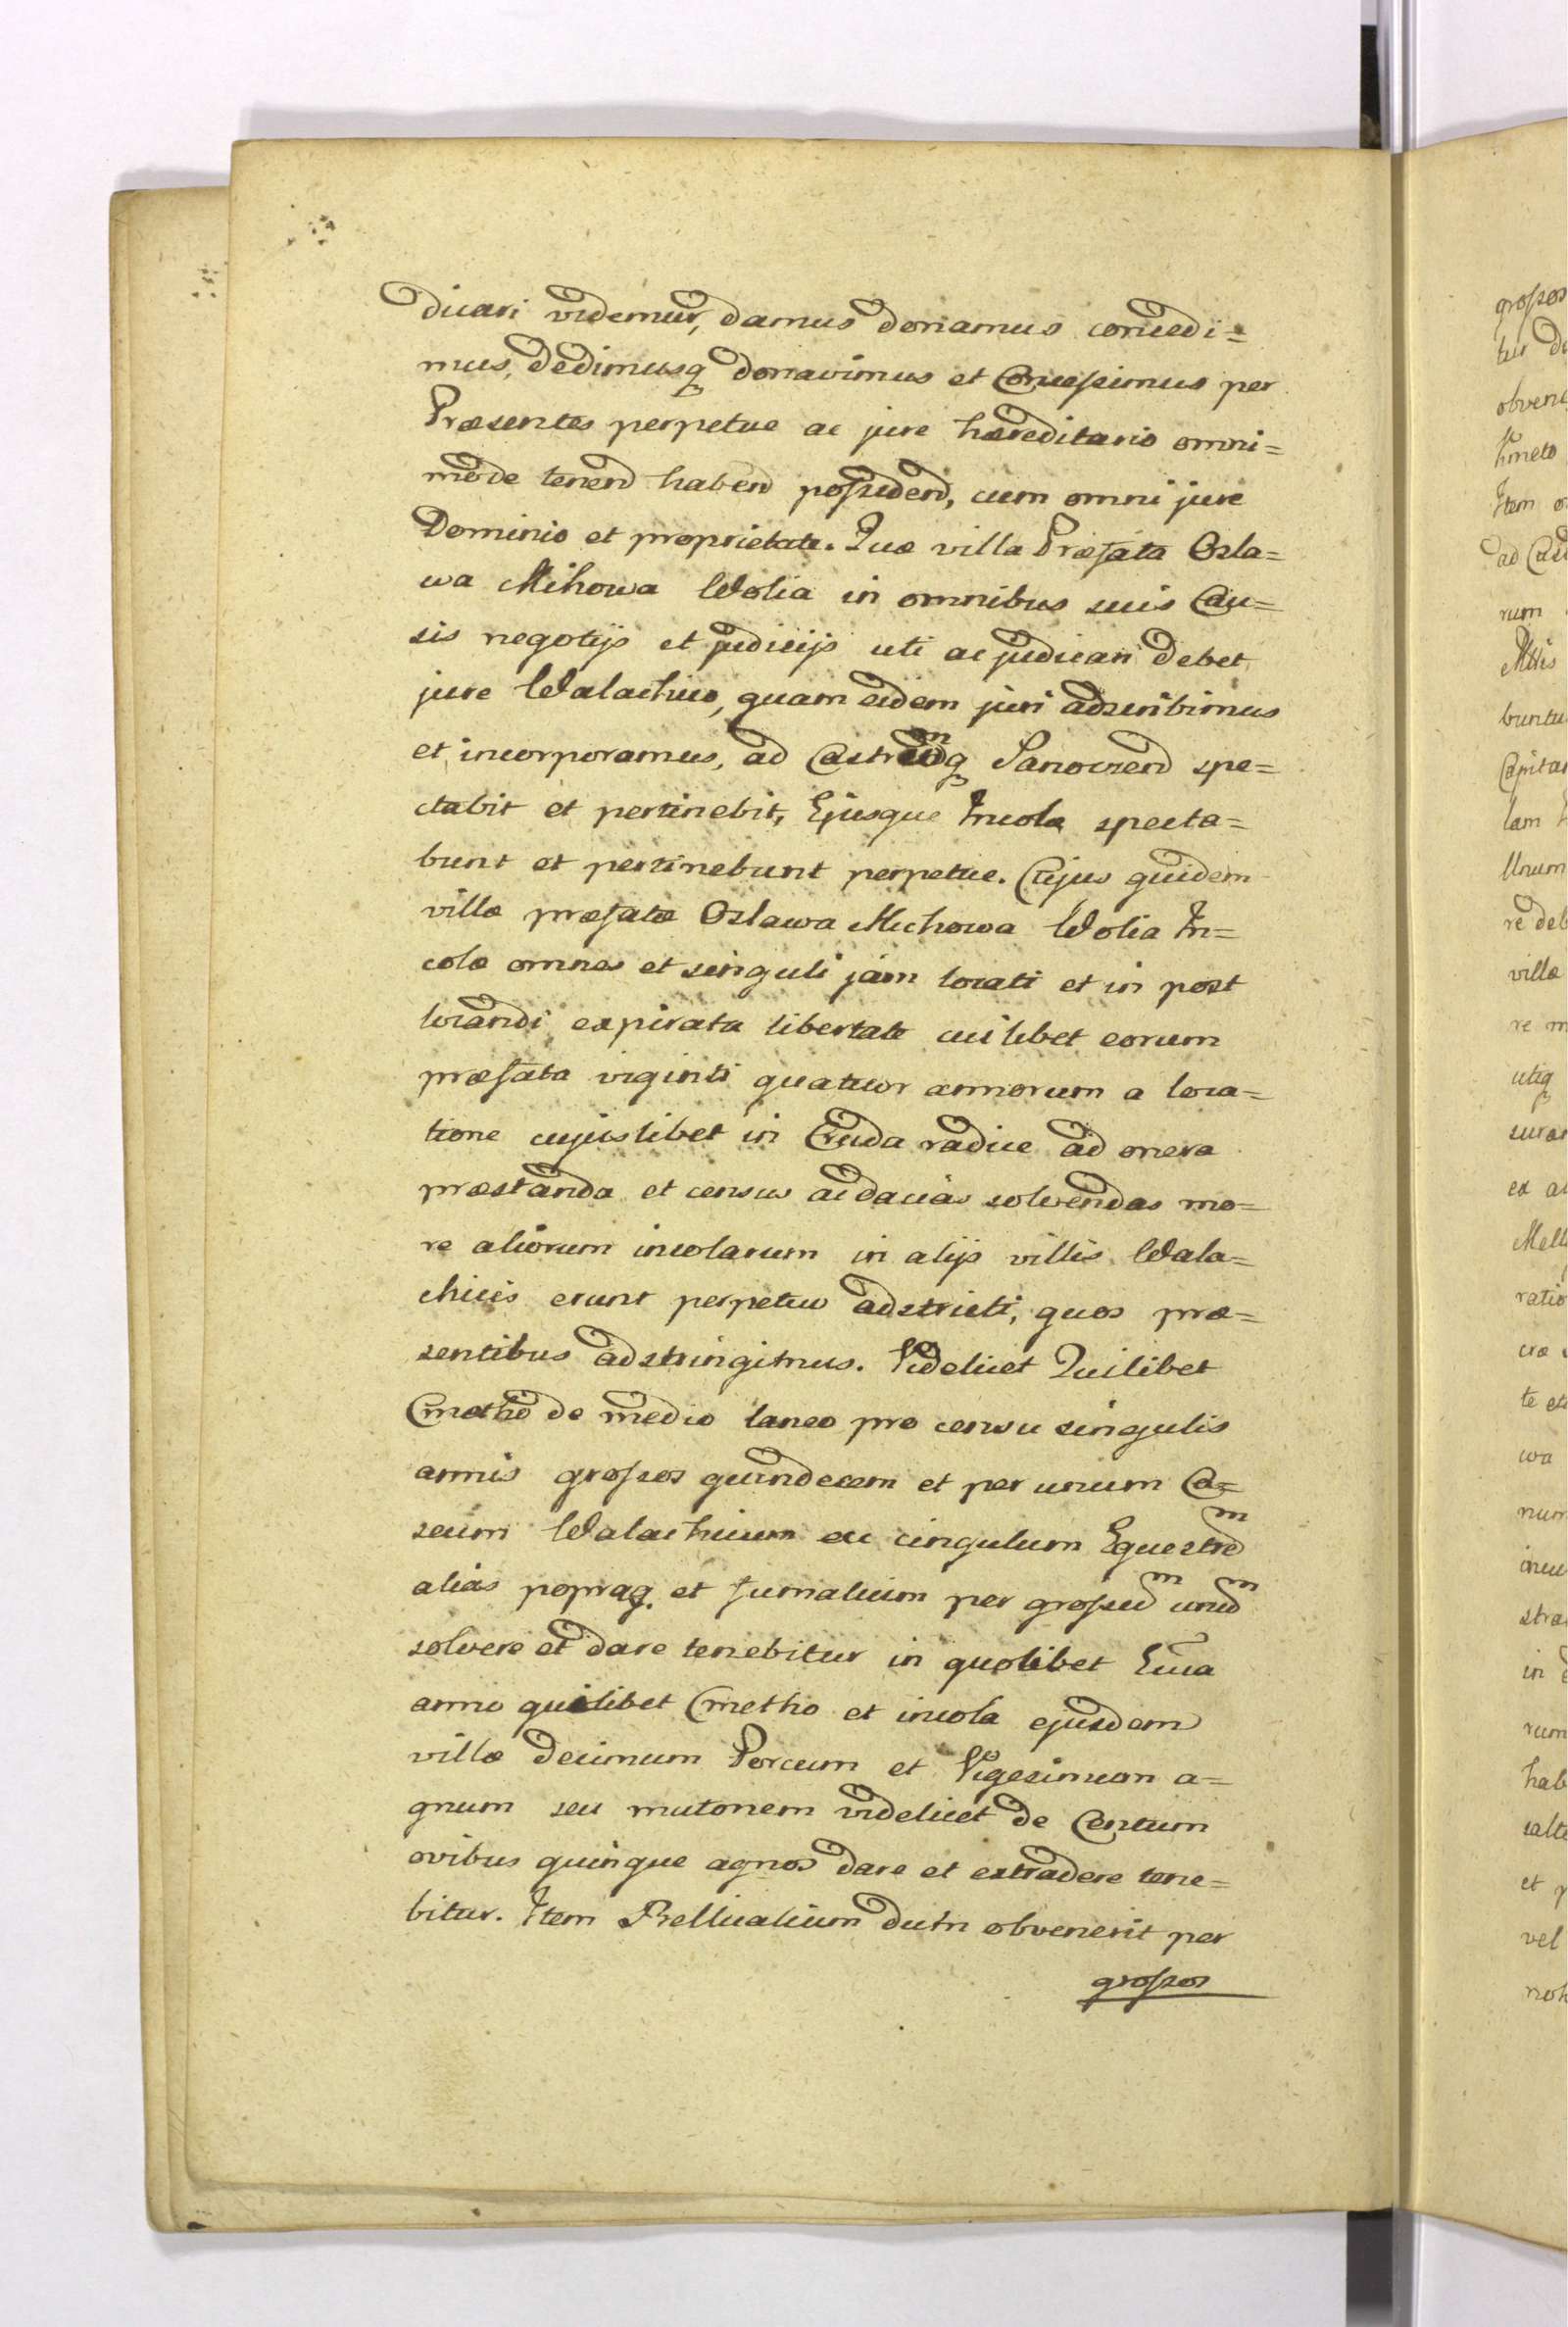 dicari videmur, damus donamus concedi=
mus, dedimusq donavimus et Concessimus per
Præsentes perpetue ac jure hæreditario omni=
mode tenend habend possidend, cum omni jure
Dominio et proprietate. Quæ villa Præfata Osla=
wa Mihowa Wolia in omnibus suis Cau=
sis negotijs et judicijs uti ac judicari debet
jure Walachico, quam eidem juri adscribimus
et incorporamus, ad Castrumq Sanoczend spe=
ctabit et pertinebit, Ejusque Incolæ specta=
bunt et pertinebunt perpetue. Cujus quidem
villæ præfatæ Oslawa Michowa Wolia In=
colæ omnes et singuli jam locati et in post
locandi expirata libertate cuilibet eorum
præfata viginti quatuor annorum a loca=
tione cujuslibet in Cruda radice ad onera
præstanda et census ac dacias solvendas mo=
re aliorum incolarum in alijs villis Wala=
chicis erunt perpetuo adstricti, quos præ=
sentibus adstringimus. Videlicet Quilibet
Cmetho de medio laneo pro censu singulis
annis grossos quindecem et per unum Ca=
seum Walachicum ac cingulum Equestrem
alias poprag. et fumalium per grossum unum
solvere et dare tenebitur in quolibet
anno quilibet Cmetho et incola ejusdem
villæ decimum Porcum et Vigesimum a=
gnum seu mutonem videlicet de Centum
ovibus quinque agnos dare et extradere tene=
bitur. Item Bellicalium dum obvenerit per
grossos
grossos
tur
obvene
kmeto
Item
ad
rum
buntu
Capitan
lam
Unum
re deb
villæ
re
utiq
ex
ratio
te
wa
num
in
rum
hab
salte
et
vel